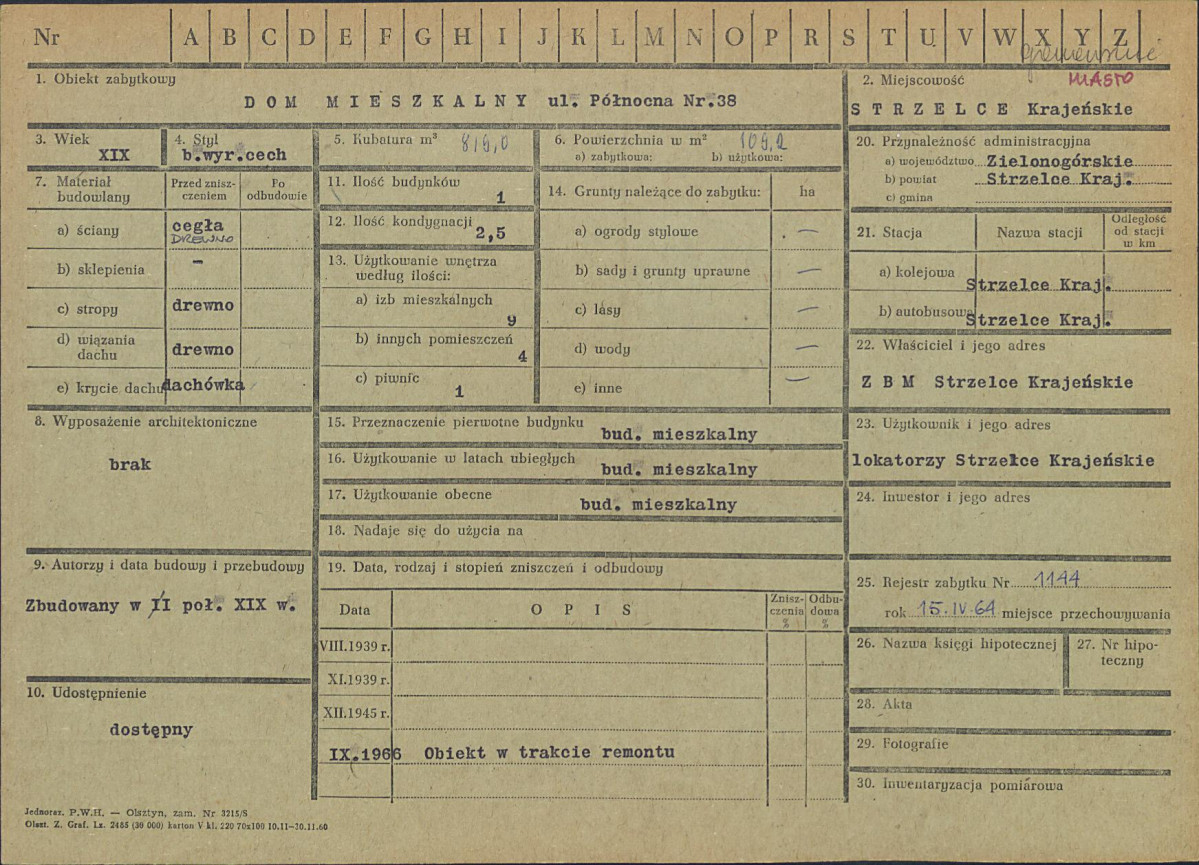 Nr A B C D E F G H I J K L M N O P R S T U V W X Y Z
1. Obiekt zabytkowy
D O M M I E S Z K A L N Y ul. Północna Nr.38
2. Miejscowość
MIASTO
S T R Z E L C E Krajeńskie
3. Wiek
XIX
4. Styl
b.wyr.cech
5. Kubatura m³ 819,0
6. Powierzchnia w m² 109,2
a) zabytkowa: b) użytkowa:
20. Przynależność administracyjna
a) województwo Zielonogórskie
b) powiat Strzelce Kraj.
c) gmina
7. Materiał budowlany
Przed zniszczeniem
Po odbudowie
a) ściany cegła
DREWNO
b) sklepienia -
c) stropy drewno
d) wiązania dachu drewno
e) krycie dachu dachówka
11. Ilość budynków
1
12. Ilość kondygnacji
2,5
13. Użytkowanie wnętrza
według ilości:
a) izb mieszkalnych
9
b) innych pomieszczeń
4
c) piwnic
1
14. Grunty należące do zabytku: ha
a) ogrody stylowe —
b) sady i grunty uprawne —
c) lasy —
d) wody —
e) inne —
21. Stacja Nazwa stacji Odległość od stacji w km
a) kolejowa Strzelce Kraj.
b) autobusowa Strzelce Kraj.
22. Właściciel i jego adres
Z B M Strzelce Krajeńskie
8. Wyposażenie architektoniczne
brak
15. Przeznaczenie pierwotne budynku
bud. mieszkalny
16. Użytkowanie w latach ubiegłych
bud. mieszkalny
17. Użytkowanie obecne
bud. mieszkalny
18. Nadaje się do użycia na
23. Użytkownik i jego adres
lokatorzy Strzelce Krajeńskie
24. Inwestor i jego adres
9. Autorzy i data budowy i przebudowy
Zbudowany w II poł. XIX w.
10. Udostępnienie
dostępny
19. Data, rodzaj i stopień zniszczeń i odbudowy
Data O P I S Zniszczenia % Odbudowa %
VIII.1939 r.
XI.1939 r.
XII.1945 r.
IX.1966 Obiekt w trakcie remontu
25. Rejestr zabytku Nr 1144
rok 15.IV.64 miejsce przechowywania
26. Nazwa księgi hipotecznej
27. Nr hipoteczny
28. Akta
29. Fotografie
30. Inwentaryzacja pomiarowa
Jednoraz. P.W.H. — Olsztyn, zam. Nr 3215/S
Olszt. Z. Graf. Lz. 2485 (39 000) karton V kl. 220 70x100 10.11—30.11.60